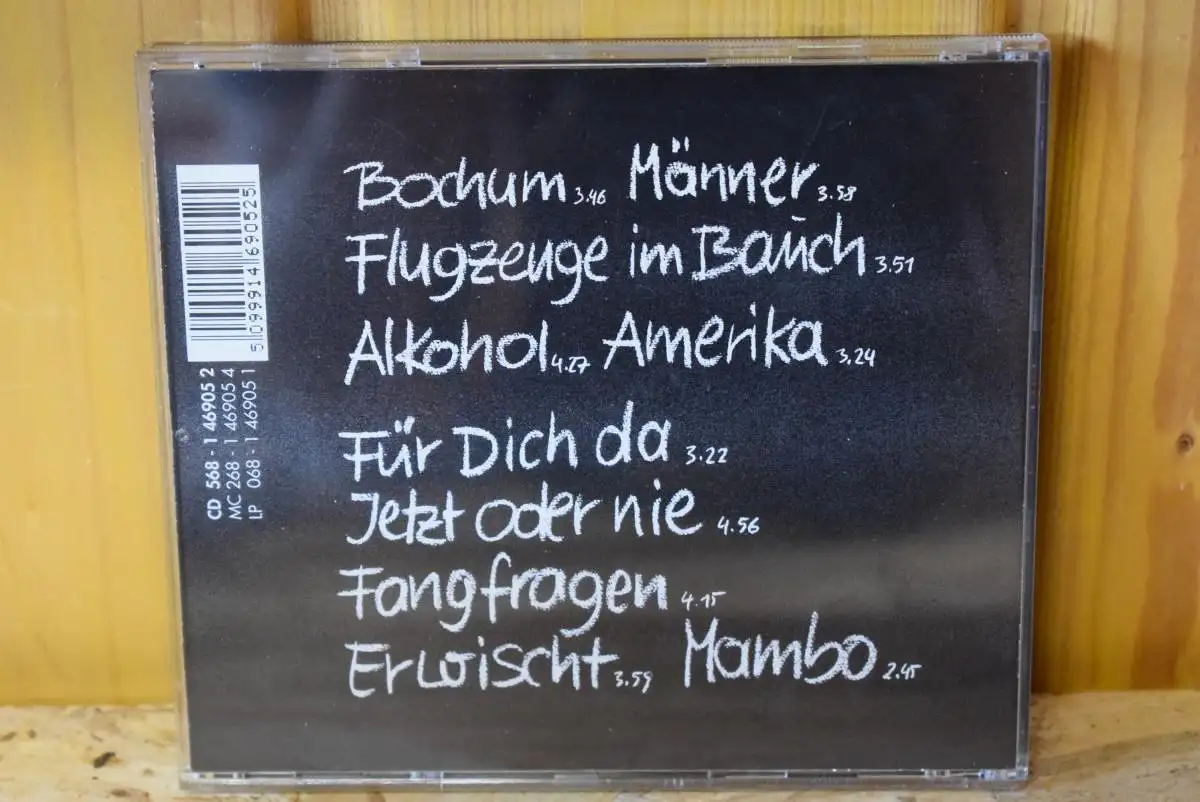 Bochum 3.46 Männer 3.58
Flugzeuge im Bauch 3.51
Alkohol 4.27 Amerika 3.24
Für Dich da 3.22
Jetzt oder nie 4.56
Fangfragen 4.15
Erwischt 3.59 Mambo 2.45
5 099914 690525
CD 568 - 1 46905 2
MC 268 - 1 46905 4
LP 068 - 1 46905 1